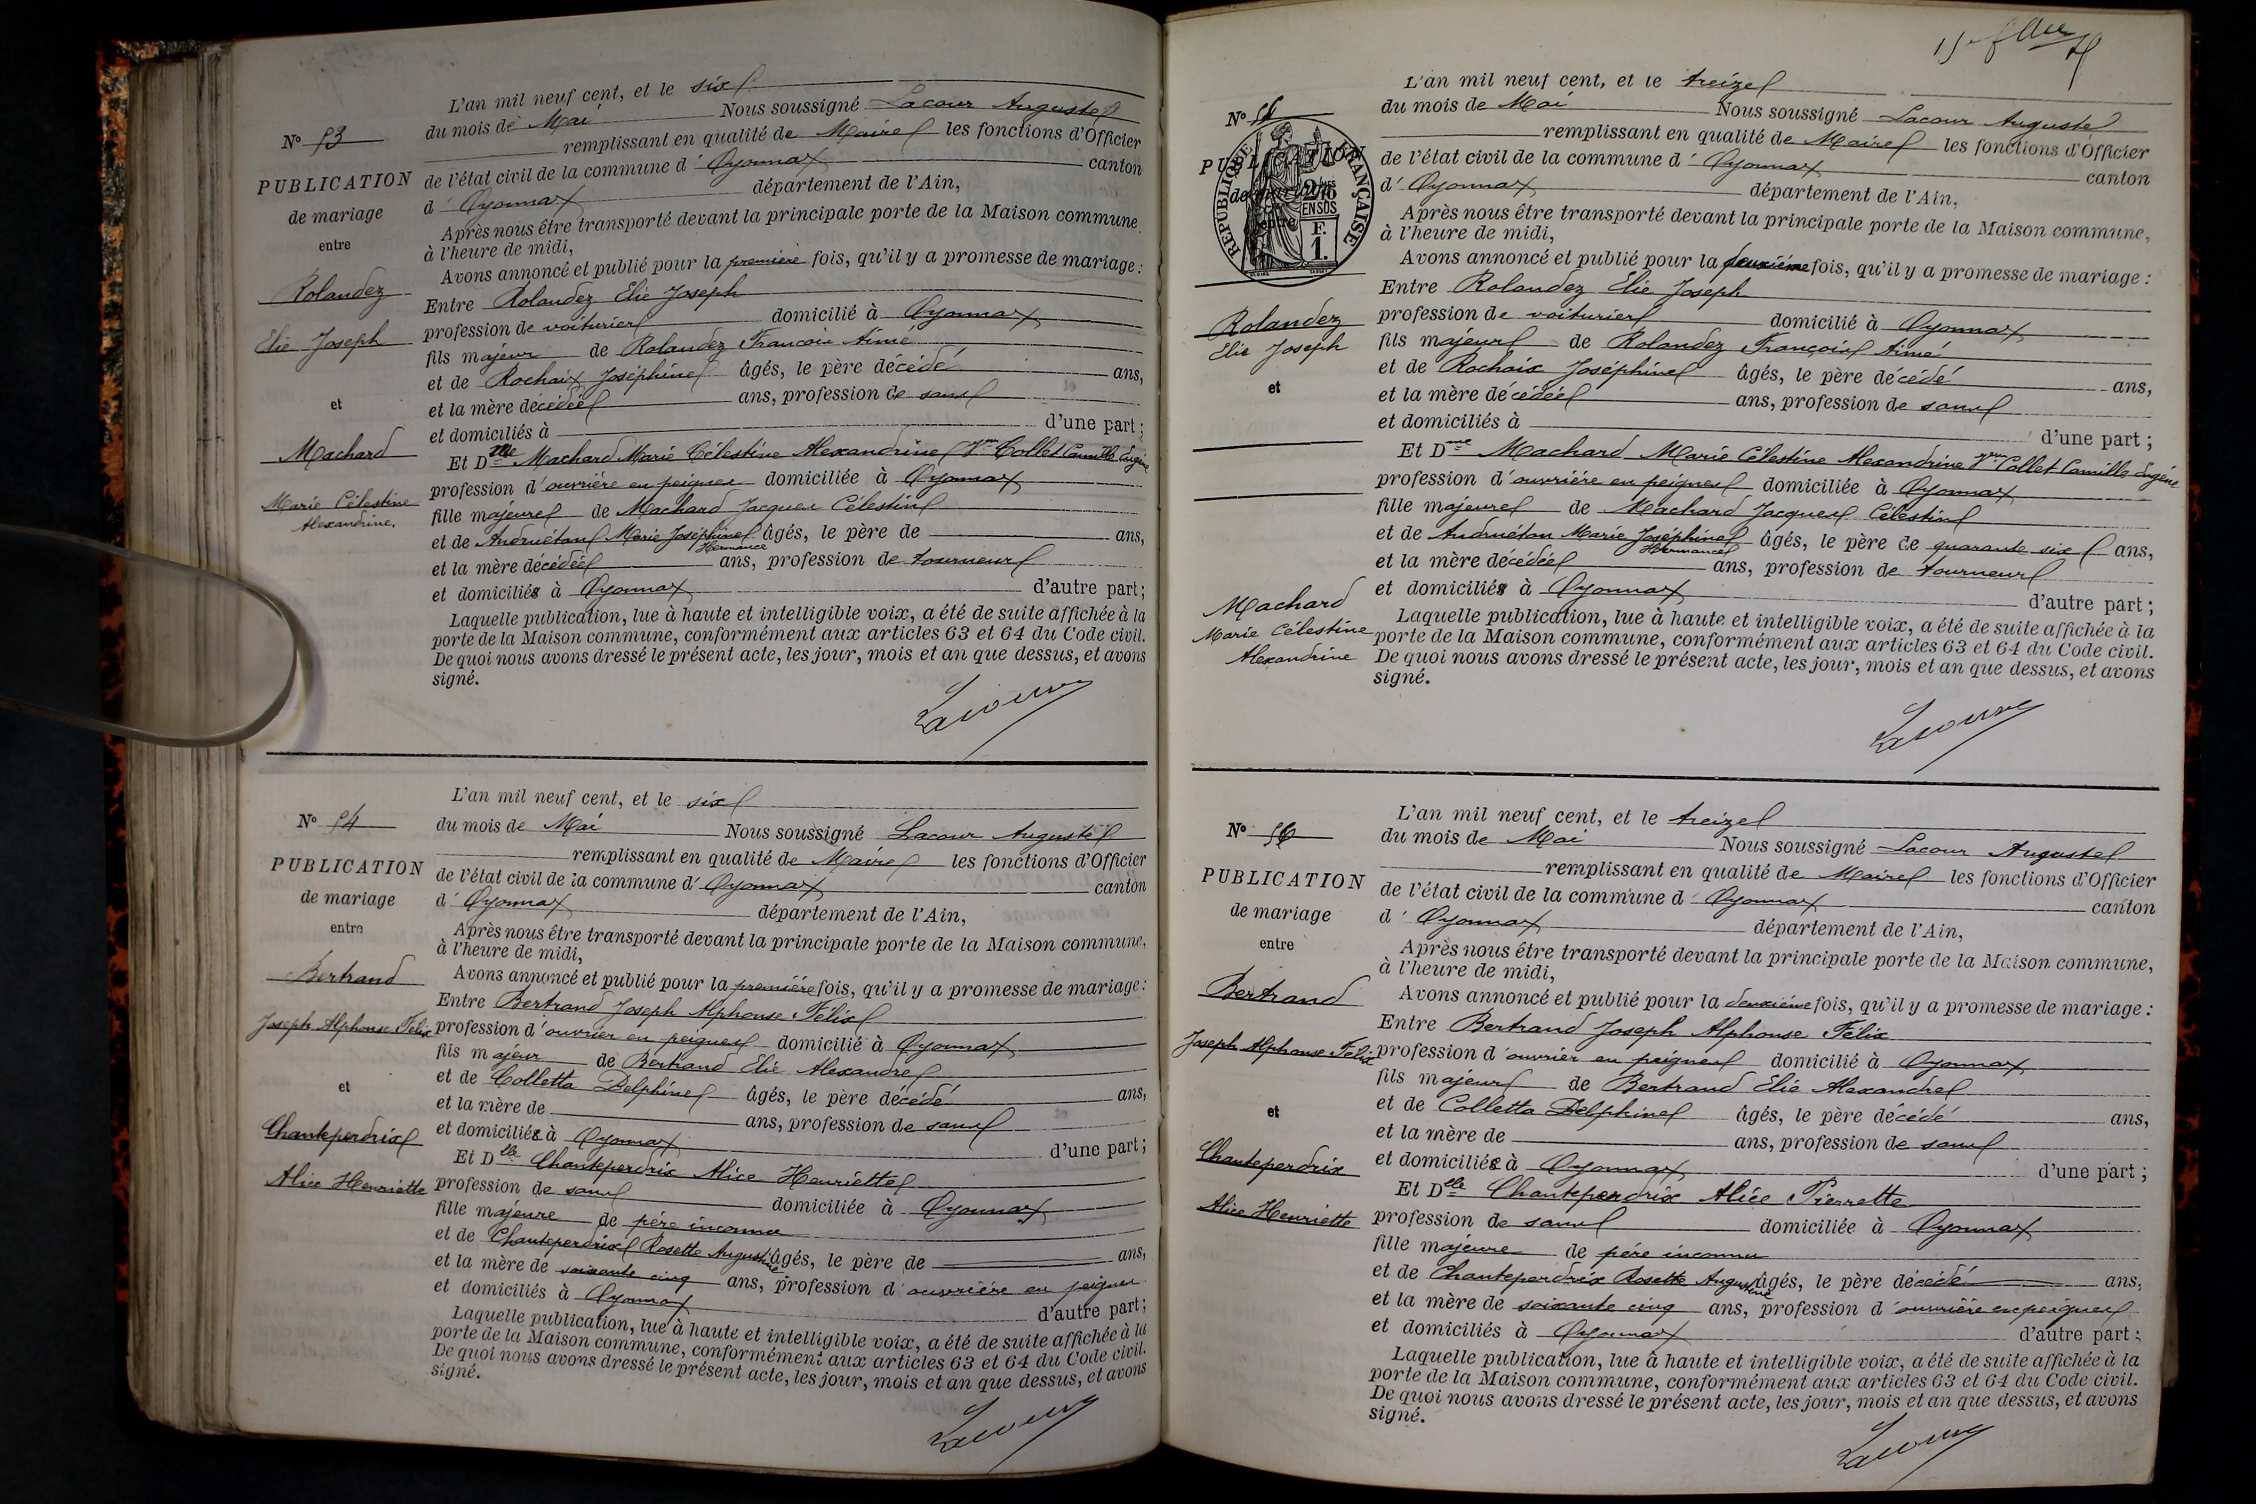 L'an mil neuf cent, et le six
du mois de Mai Nous soussigné Lacour Auguste
remplissant en qualité de Maire les fonctions d'Officier
de l'état civil de la commune d' Oyonnax canton
d' Oyonnax département de l'Ain,
Après nous être transporté devant la principale porte de la Maison commune,
à l'heure de midi,
Avons annoncé et publié pour la première fois, qu'il y a promesse de mariage :
Entre Rolandez Elie Joseph
profession de voiturier domicilié à Oyonnax
fils majeur de Rolandez François Aimé
et de Rochaix Joséphine âgés, le père décédé ans,
et la mère décédée ans, profession de sans
et domiciliés à d'une part ;
Et Dme Machard Marie Célestine Alexandrine Vve Collet Camille Eugène
profession d'ouvrière en peignes domiciliée à Oyonnax
fille majeure de Machard Jacques Célestin
et de Andruétan Marie Joséphine Hermance âgés, le père de ans,
et la mère décédée ans, profession de tourneur
et domiciliés à Oyonnax d'autre part ;
Laquelle publication, lue à haute et intelligible voix, a été de suite affichée à la
porte de la Maison commune, conformément aux articles 63 et 64 du Code civil.
De quoi nous avons dressé le présent acte, les jour, mois et an que dessus, et avons
signé.
Lacour
No 53
PUBLICATION
de mariage
entre
Rolandez
Elie Joseph
et
Machard
Marie Célestine
Alexandrine.
L'an mil neuf cent, et le six
du mois de Mai Nous soussigné Lacour Auguste
remplissant en qualité de Maire les fonctions d'Officier
de l'état civil de la commune d' Oyonnax canton
d' Oyonnax département de l'Ain,
Après nous être transporté devant la principale porte de la Maison commune,
à l'heure de midi,
Avons annoncé et publié pour la première fois, qu'il y a promesse de mariage :
Entre Bertrand Joseph Alphonse Félix
profession d'ouvrier en peignes domicilié à Oyonnax
fils majeur de Bertrand Elie Alexandre
et de Colletta Delphine âgés, le père décédé ans,
et la mère de ans, profession de sans
et domiciliée à Oyonnax d'une part ;
Et Dlle Chanteperdrix Alice Henriette
profession de sans domiciliée à Oyonnax
fille majeure de père inconnu
et de Chanteperdrix Rosette Augustine âgés, le père de ans,
et la mère de soixante cinq ans, profession d'ouvrière en peignes
et domiciliés à Oyonnax d'autre part ;
Laquelle publication, lue à haute et intelligible voix, a été de suite affichée à la
porte de la Maison commune, conformément aux articles 63 et 64 du Code civil.
De quoi nous avons dressé le présent acte, les jour, mois et an que dessus, et avons
signé.
Lacour
No 54
PUBLICATION
de mariage
entre
Bertrand
Joseph Alphonse Félix
et
Chanteperdrix
Alice Henriette
L'an mil neuf cent, et le treize
du mois de Mai Nous soussigné Lacour Auguste
remplissant en qualité de Maire les fonctions d'Officier
de l'état civil de la commune d' Oyonnax canton
d' Oyonnax département de l'Ain,
Après nous être transporté devant la principale porte de la Maison commune,
à l'heure de midi,
Avons annoncé et publié pour la deuxième fois, qu'il y a promesse de mariage :
Entre Rolandez Elie Joseph
profession de voiturier domicilié à Oyonnax
fils majeur de Rolandez François Aimé
et de Rochaix Joséphine âgés, le père décédé ans,
et la mère décédée ans, profession de sans
et domiciliés à d'une part ;
Et Dme Machard Marie Célestine Alexandrine Vve Collet Camille Eugène
profession d'ouvrière en peignes domiciliée à Oyonnax
fille majeure de Machard Jacques Célestin
et de Andruétan Marie Joséphine Hermance âgés, le père de quarante six ans,
et la mère décédée ans, profession de tourneur
et domiciliés à Oyonnax d'autre part ;
Laquelle publication, lue à haute et intelligible voix, a été de suite affichée à la
porte de la Maison commune, conformément aux articles 63 et 64 du Code civil.
De quoi nous avons dressé le présent acte, les jour, mois et an que dessus, et avons
signé.
Lacour
No 55
PUBLICATION
de mariage
entre
RÉPUBLIQUE FRANÇAISE
EN SUS
F.
1.
Rolandez
Elie Joseph
et
Machard
Marie Célestine
Alexandrine
L'an mil neuf cent, et le treize
du mois de Mai Nous soussigné Lacour Auguste
remplissant en qualité de Maire les fonctions d'Officier
de l'état civil de la commune d' Oyonnax canton
d' Oyonnax département de l'Ain,
Après nous être transporté devant la principale porte de la Maison commune,
à l'heure de midi,
Avons annoncé et publié pour la deuxième fois, qu'il y a promesse de mariage :
Entre Bertrand Joseph Alphonse Félix
profession d'ouvrier en peignes domicilié à Oyonnax
fils majeur de Bertrand Elie Alexandre
et de Colletta Delphine âgés, le père décédé ans,
et la mère de ans, profession de sans
et domiciliée à Oyonnax d'une part ;
Et Dlle Chanteperdrix Alice Pierrette
profession de sans domiciliée à Oyonnax
fille majeure de père inconnu
et de Chanteperdrix Rosette Augustine âgés, le père décédé ans,
et la mère de soixante cinq ans, profession d'ouvrière en peignes
et domiciliés à Oyonnax d'autre part ;
Laquelle publication, lue à haute et intelligible voix, a été de suite affichée à la
porte de la Maison commune, conformément aux articles 63 et 64 du Code civil.
De quoi nous avons dressé le présent acte, les jour, mois et an que dessus, et avons
signé.
Lacour
No 56
PUBLICATION
de mariage
entre
Bertrand
Joseph Alphonse Félix
et
Chanteperdrix
Alice Henriette